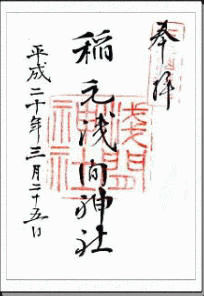 奉拝
稲元浅間神社
平成二十年三月二十五日
浅間
神社